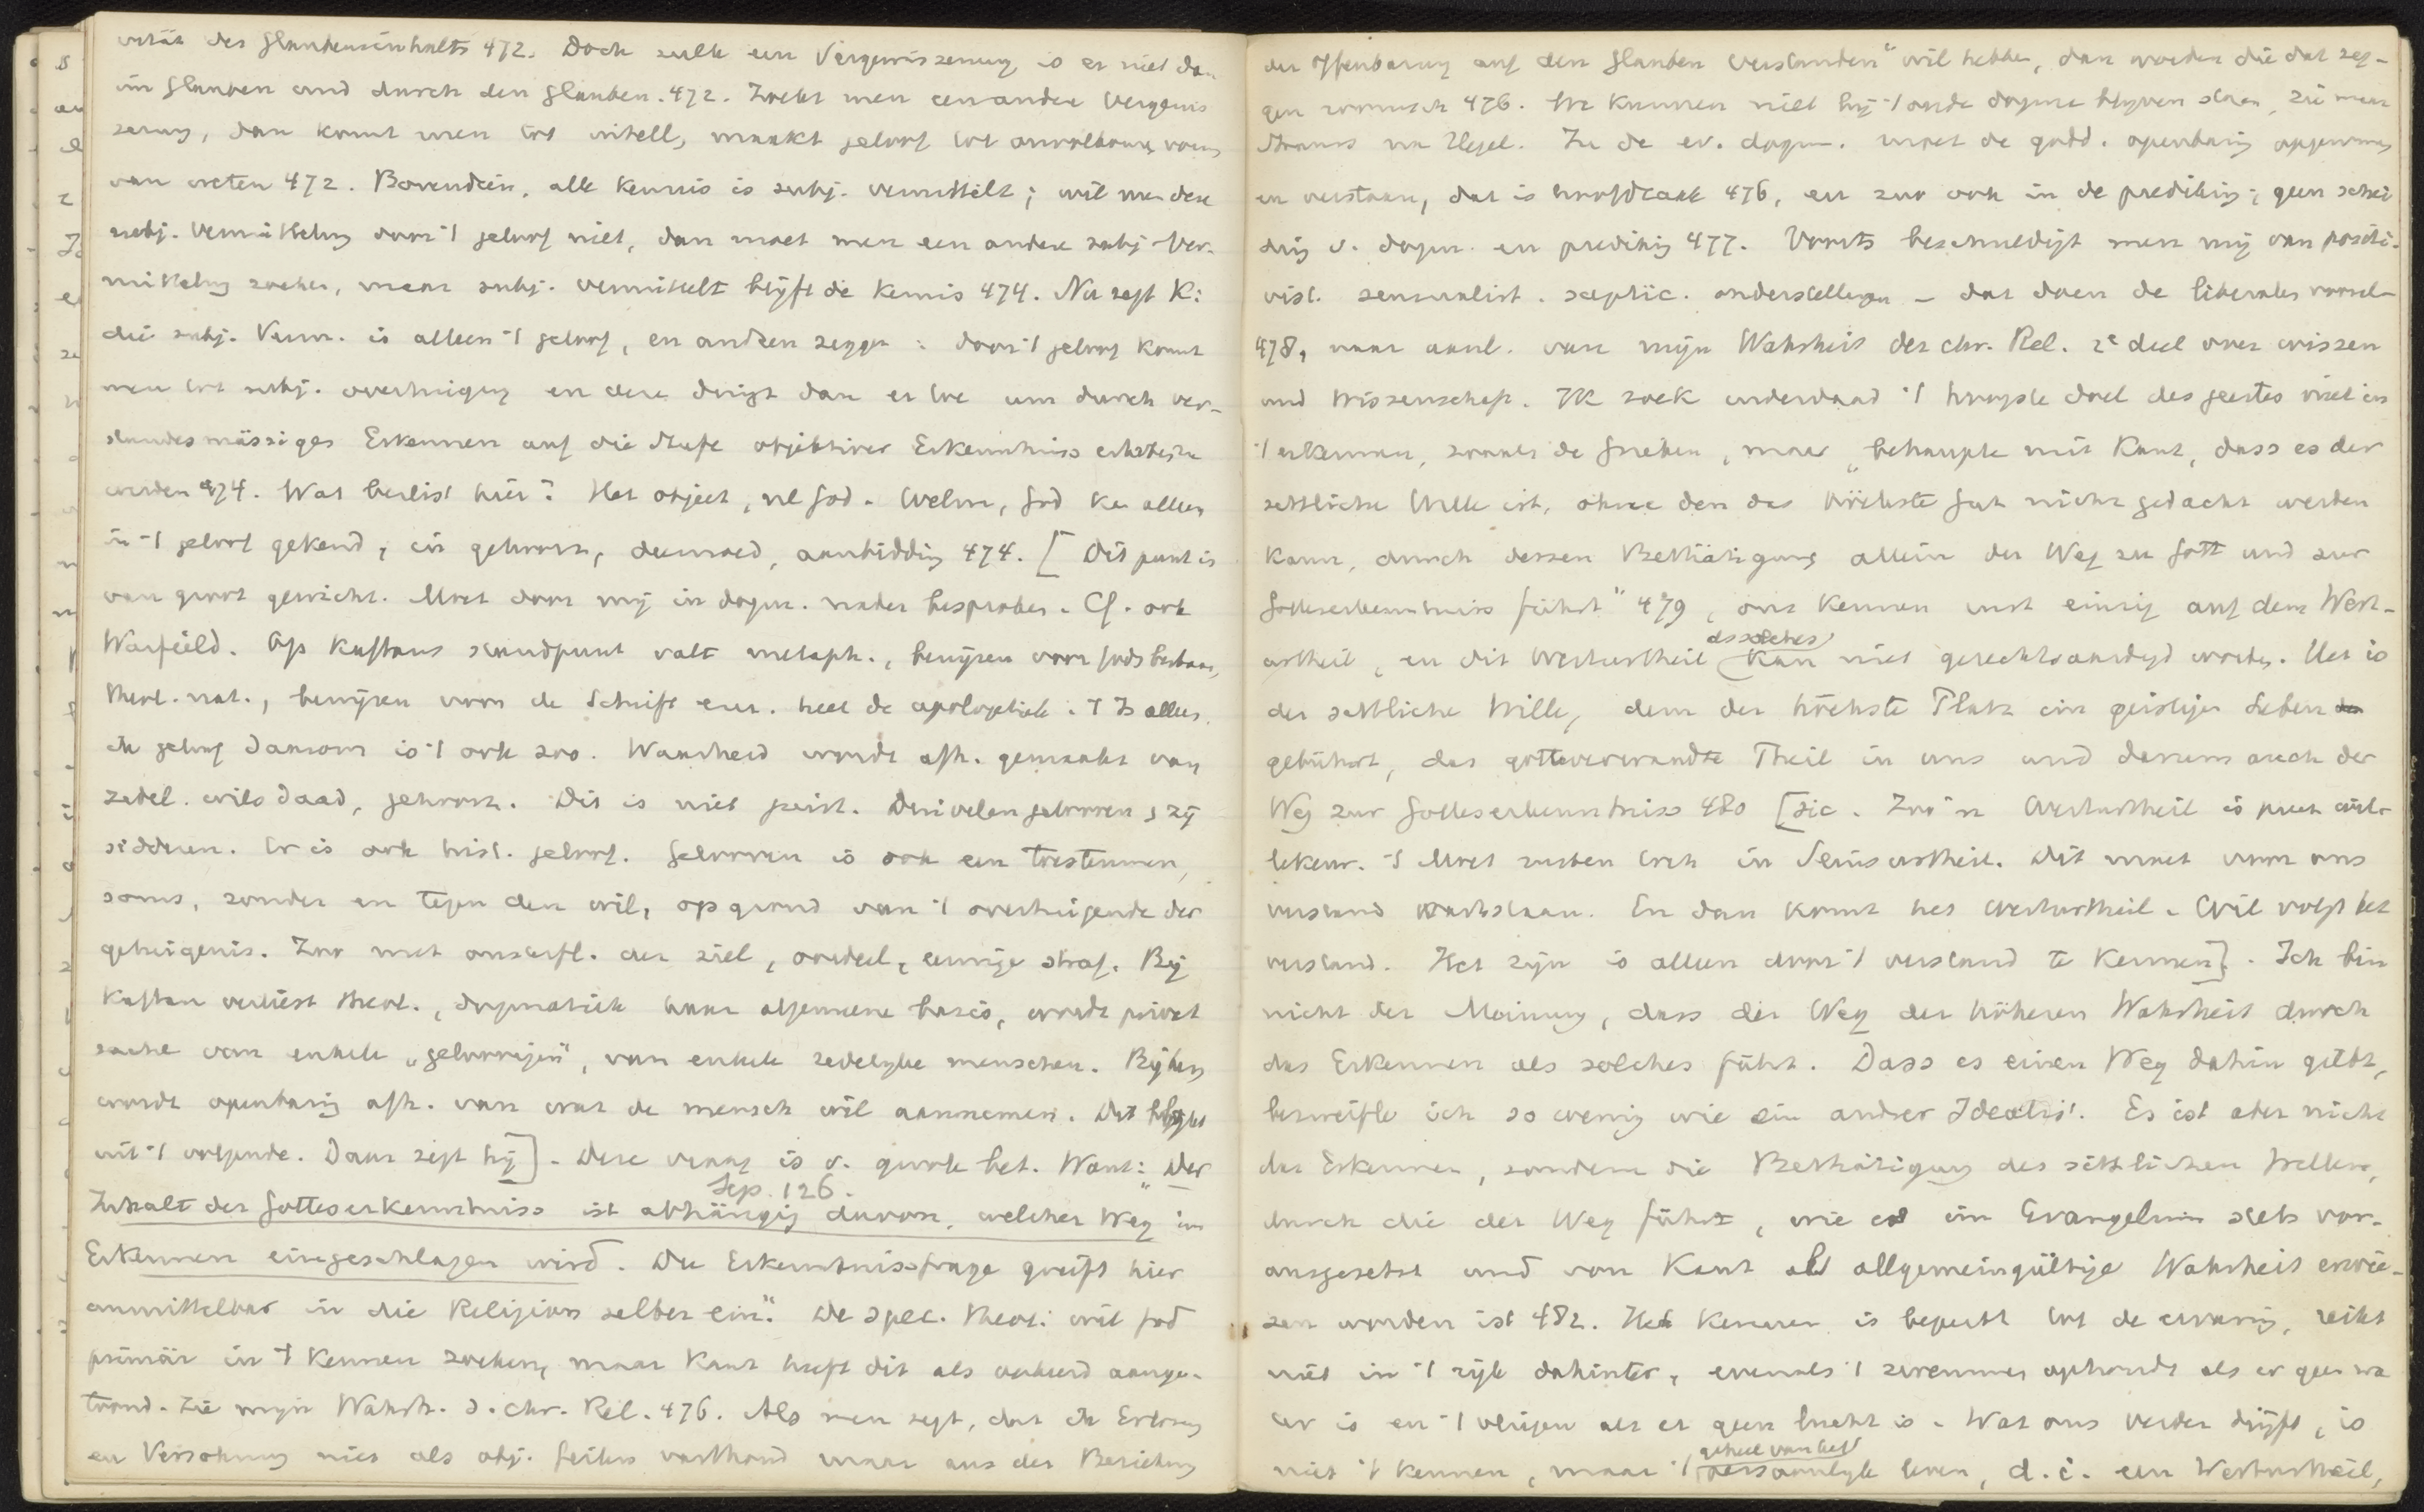 des Glaubensinhalts 472. Doch zulk een Vergewisserung is er niet dan
im Glauben und durch den Glauben. 472. Zoekt men een andere Vergewis
serung, dan komt men tot intell, maakt geloof tot onvolkomen vorm
van weten 472. Bovendien, alle kennis is subj. vermittelt; wil men deze
subj. Vermitteling door 't geloof niet, dan moet men een andere subj. Ver-
mitteling zoeken, maar subj. vermittelt blijft de kennis 474. Nu zegt K:
die subj. Verm. is alleen 't geloof, en anderen zeggen: door 't geloof komt
men tot subj. overtuiging en deze dringt dan er toe um durch ver-
standesmässiges Erkennen auf die Stufe objektiver Erkenntniss erhoben zu
werden 474. Wat beslist hier? Het object, nl God. Welnu, God kan alleen
in 't geloof gekend, in gehoorz, deemoed, aanbidding 474. [Dit punt is
van groot gewicht. Moet door mij in dogm. nader besproken. Cf. ook
Warfield. Op Kaftans standpunt valt metaph., bewijzen voor Gods bestaan,
theol. nat., bewijzen voor de Schrift enz. heel de apologetiek. 't Is alles
geloof daarom is 't ook zoo. Waarheid wordt afh. gemaakt van
zedel. wilsdaad, gehoorz. Dit is niet juist. Duivelen gelooven, zij
sidderen. Er is ook hist. geloof. Gelooven is ook een toestemmen,
soms, zonder en tegen den wil, op grond van 't overtuigende der
getuigenis. Zoo met onsterfl. der ziel, oordeel, eeuwige straf. Bij
Kaftan verliest theol., dogmatiek haar algemeene basis, wordt privat
sache van enkele „geloovigen", van enkele zedelijke menschen. Bij hem
wordt openbaring afh. van wat de mensch wil aannemen. Dit blijkt
uit 't volgende. Daar zegt hij]. Deze vraag is v. groote bet. Want: „Der
Sep. 126.
Inhalt der Gotteserkenntniss ist abhängig davon, welcher Weg im
Erkennen eingeschlagen wird. Die Erkenntnissfrage greift hier
unmittelbar in die Religion selber ein". De spec. theol: wil God
primär in 't kennen zoeken, maar Kant heeft dit als verkeerd aange-
toond. Zie mijn Wahrh. d. chr. Rel. 476. Als men zegt, dat ik Erlösung
en Versöhnung niet als obj. feiten vasthoud maar aus der Beziehung
der Offenbarung auf den Glauben verstanden" wil hebben, dan worden die dat zeg-
gen roomsch 476. We kunnen niet bij 't oude dogma blijven staan, zie men
Strauss na Hegel. In de ev. dogm. moet de godd. openbaring opgenomen
en verstaan, dat is hoofdzaak 476, en zoo ook in de prediking; geen schei
ding v. dogm. en prediking 477. Voorts beschuldigt men mij van positi-
vist. sensualist. sceptic. onderstellingen - dat doen de liberalen vooral
478, naar aanl. van mijn Wahrheit der chr. Rel. 2e deel over wissen
und Wissenschaft. Ik zoek inderdaad 't hoogste doel des geestes niet in
't erkennen, zooals de Grieken, maar „behaupte mit Kant, dass es der
sittliche Wille ist, ohne den das höchste Gut nicht gedacht werden
kann, durch dessen Bethätigung allein der Weg zu Gott und zur
Gotteserkenntniss führt" 479, ons kennen rust einzig auf dem Wert-
als solches
urtheil, en dit Werturtheil kan niet gerechtvaardigd worden. Het is
der sittliche Wille, dem der höchste Platz im geistigen Leben
gebührt, das gottverwandte Theil in uns und darum auch der
Weg zur Gotteserkenntniss 480 [sic. Zoo'n Werturtheil is puur wil-
lekeur. 't Moet rusten toch in Seinsurtheil. Dit moet voor ons
verstand vaststaan. En dan komt het Werturtheil. Wil volgt het
verstand. Het zijn is alleen door 't verstand te kennen]. Ich bin
nicht der Meinung, dass der Weg der höheren Wahrheit durch
das Erkennen als solches führt. Dass es einen Weg dahin giebt,
bezweifle ich so wenig wie ein andrer Idealist. Es ist aber nicht
das Erkennen, sondern die Bethätigung des sittlichen Willens,
durch die der Weg führt, wie es im Evangelium stets vor-
ausgesetzt und von Kant als allgemeingültige Wahrheit erwie-
sen worden ist 482. Het kennen is beperkt tot de ervaring, reikt
niet in 't rijk dahinter, evenals 't zwemmen ophoudt als er geen wa
ter is en 't vliegen als er geen lucht is. Wat ons verder drijft, is
geheel van zelf
niet 't kennen, maar 't persoonlijke leven, d.i. een Werturtheil,